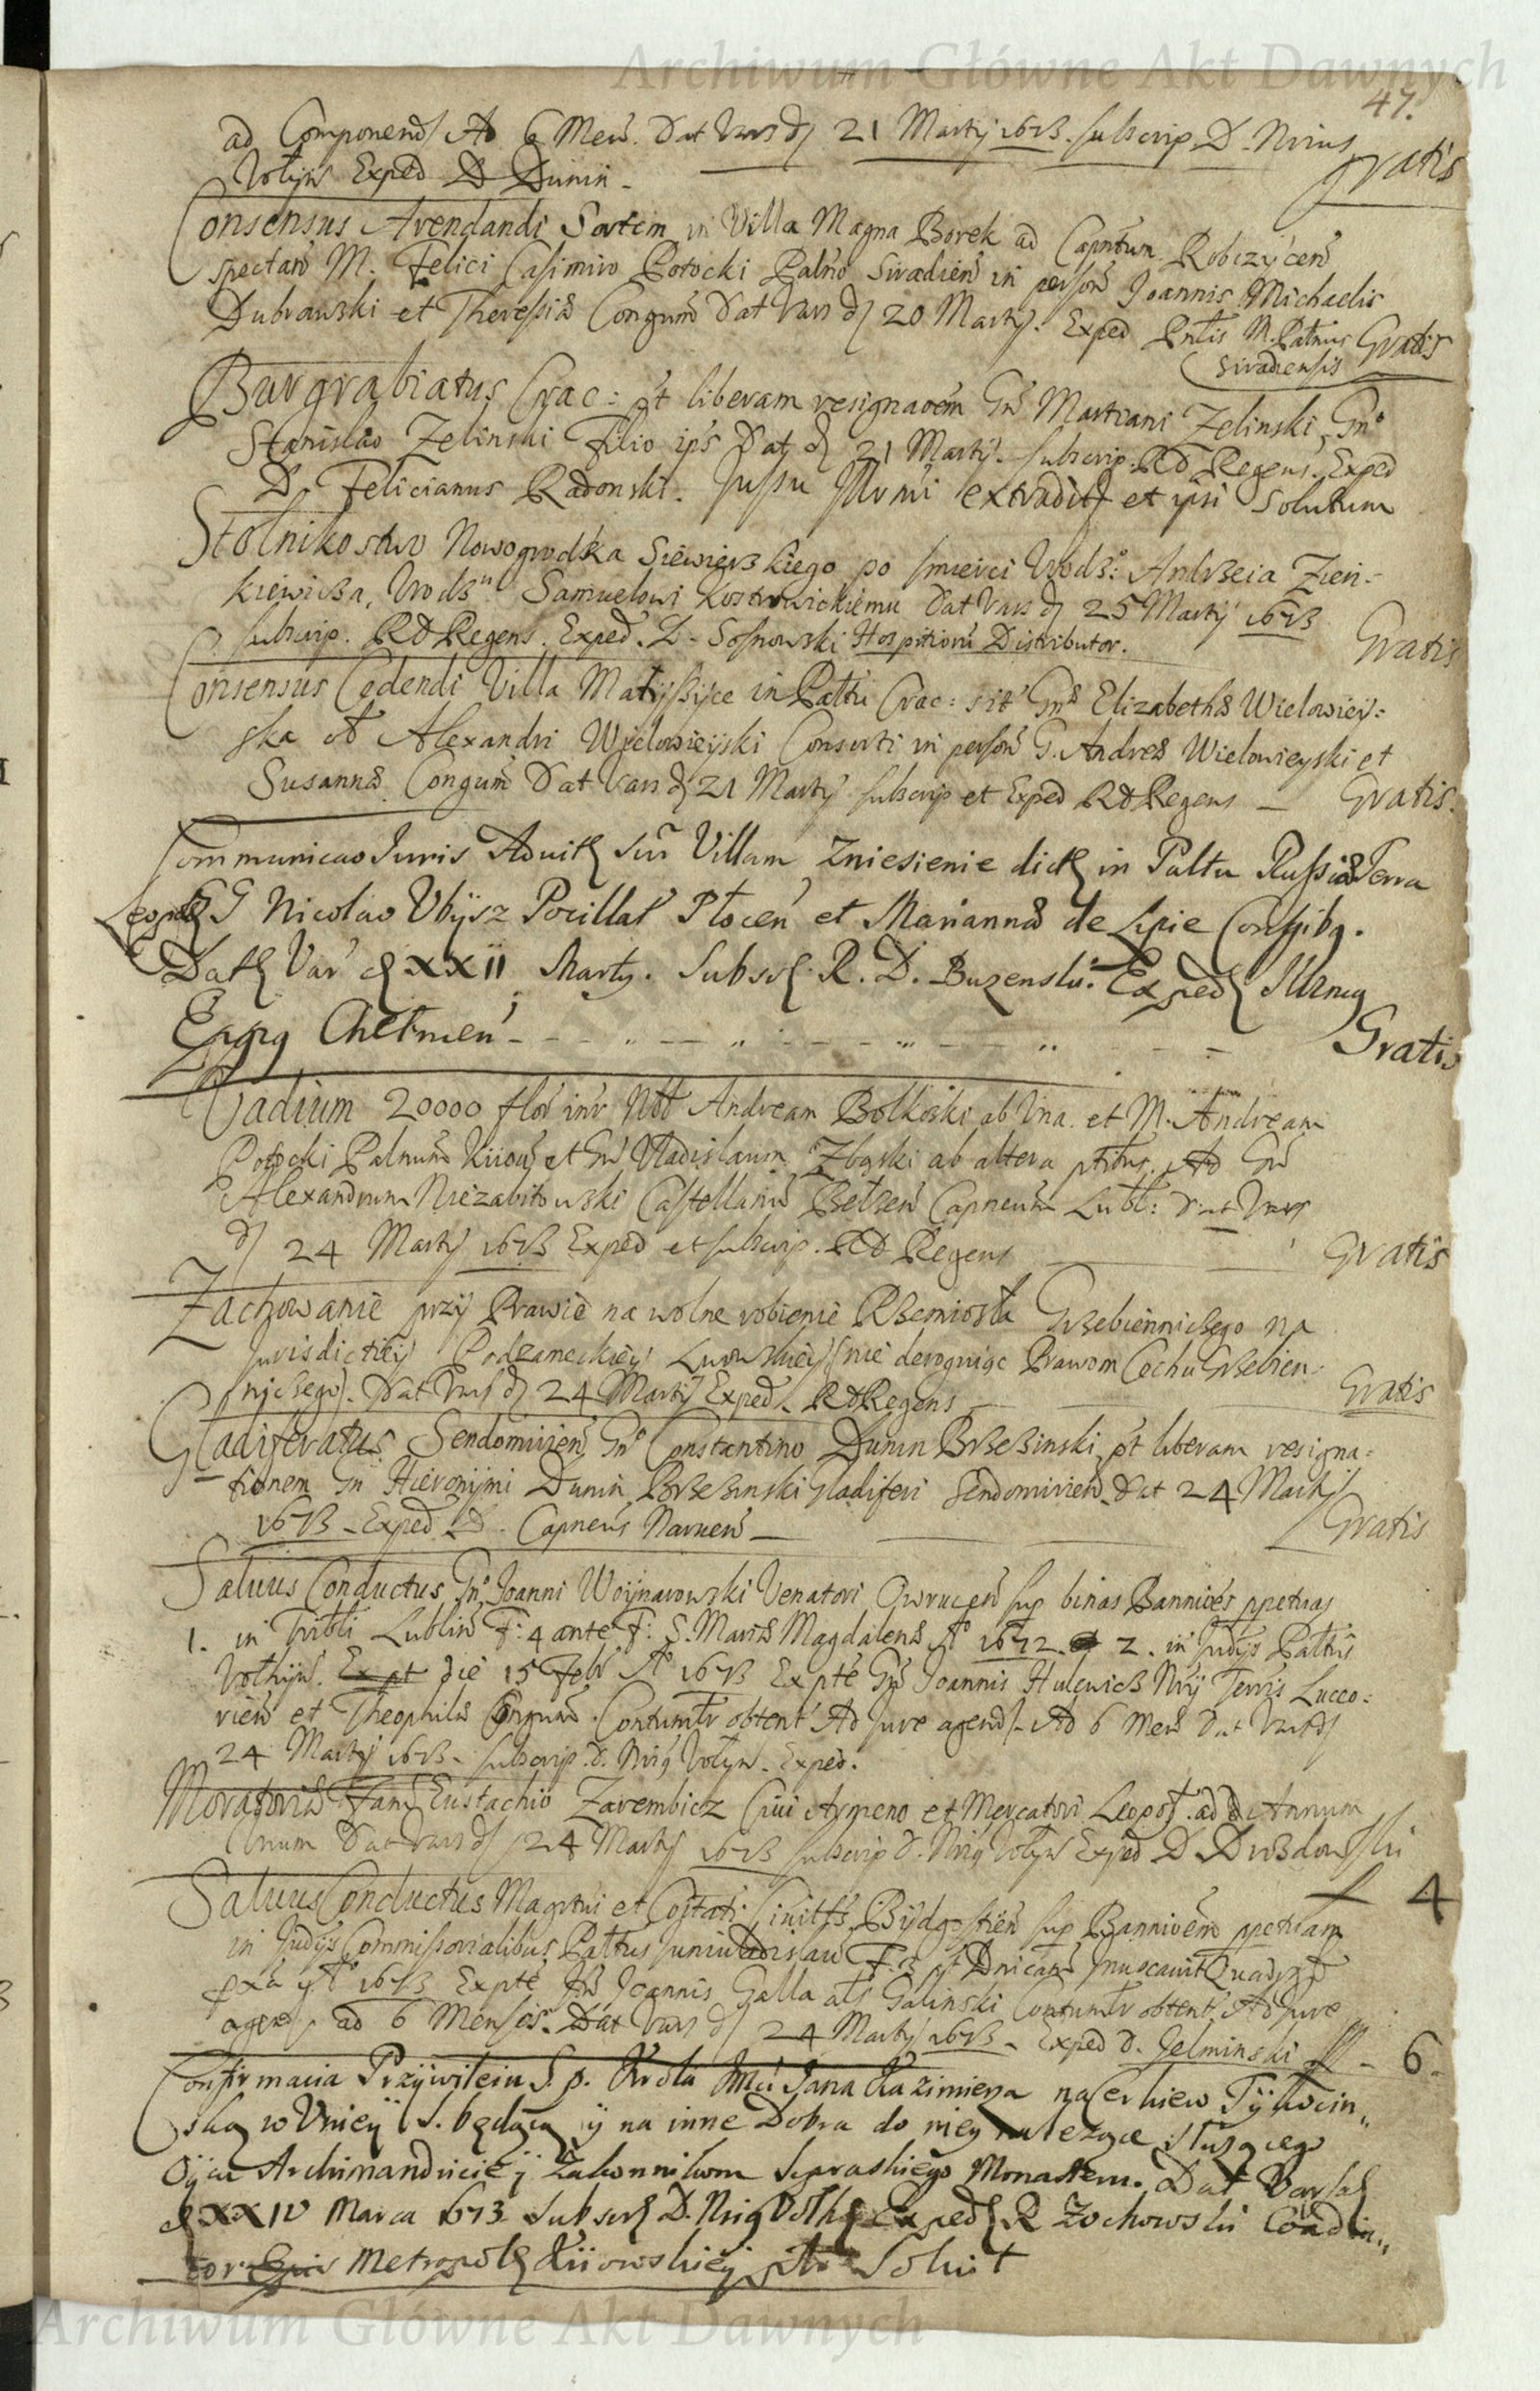 Archiwum Główne Akt Dawnych
47.
ad Componend Ad 6 Mens. Dat Vars d 21 Martij 1673. subscrip D. Nrius
Volyn Exped D Dunin - gratis
Consensus Arendandi Sortem in Villa Magna Borek ad Capntum Robczÿcen
spectan M. Felici Casimiro Potocki Palno Siradien in person Joannis Michaelis
Dubrawski et Theressiæ Congum Dat Vars d 20 Martij. Exped M. Patnus Gratis
Siradiensis
Burgrabiatus Crac: pt liberam resignaoem Gn Martiani Zelinski Gno
Stanislao Zelinski Filio ips Dat d 21 Martij. subscrip. RD Regens. Exped
D. Felicianus Radonski. Jussu Illrmi extradit et ipsi Solutum
Stolnikostwo Nowogrodka Siewierskiego po smierci Urodz: Andrzeia Zien-
kiewicza, Urodz Samuelowi Kostrowickiemu Dat Vars d 25 Martij 1673
subscrip. RD Regens. Exped. D - Sosnowski Hospitioru Distributor. Gratis
Consensus Cedendi Villa Matÿszÿce in Paltu Crac: sit Gnæ Elizabethæ Wielowiey-
ska Alexandri Wielowieÿski Consorti in person G. Andreæ Wielowieyski et
Susannæ Congum Dat Vars d 21 Martij subscrip et Exped RD Regens - Gratis.
Communicao Iuris Advit sur Villam Zniesienie dict in Paltu Russiæ Terra
Leopol G Nicolao Ubÿsz Pocillat Płocen et Mariannæ de Lipie
Dat Var d XXII Marty. Subscr R. D. Buzenski. Exped Illrmg
Eppg Chełmen - - - Gratis
Vadium 20000 flor intr Nbl Andream Bolkoski ab Una. et M. Andream
Potocki Palnum Kiiou et Gn Vladislaum Zbąski ab altera ptibus. Ad Gn
Alexandrum Niezabitowski Castellanu Bełzen Capneum Lubl: Dat Vars
d 24 Martij 1673 Exped et subscrip. RD Regens Gratis
Zachowanie przÿ Prawie na wolne robienie Rzemiosła Grzebienniczego na
Jurisdictieÿ Podzameckieÿ Lwowskieÿ (nie deroguiąc Prawom Cechu Grzebien-
niczego). Dat Vars d 24 Martij Exped. RD Regens Gratis
Gladiferatus Sendomirien Gno Constantino Dunin Brzezinski pt liberam resigna-
tionem Gn Hieronÿmi Dunin Brzezinski Gladiferi Sendomirien. Dat 24 Martij
1673 - Exped D. Capneus Naruen - Gratis
Saluus Conductus Gno Joanni Woÿnarowski Venatori Owrucen sup binas Bannioes ppetuas
1. in Tribli Lublin F: 4 ante F: S. Mariæ Magdalenæ Ao 1672 2. in Judijs Paltus
Volhÿn. Expt die 15 Febr Ao 1673 Expte Gn Joannis Hulewicz Nrÿ Terris Luceo-
rien et Theophilæ Congum. Contumtr obtent Ad Jure agend. Ad 6 Mens Dat Vars d
24 Martij 1673. subscrip. D. Nrig Volyn. Exped.
Moratoriu Fam Eustachio Zarembicz Ciui Armeno et Mercatori Leopol. ad Annum
Unum Dat Vars d 24 Martij 1673 subscrip D. Nrig Volyn Exped D Drozdowski
4
Saluus Conductus Magrtui et Civitts Bÿdgostien sup Bannioem ppetuam
in Judijs Commissorialibus Paltus F. 3 pt Dnicam Inuocauit
1673 Expte Joannis Galla als Galinski Contumtr obtent. Ad Jure
agend ad 6 Menses. Dat Vars d 24 Martij 1673 - Exped D. Jelminski - 6.
Confirmacia Przÿwileiu S. p. Krola Jmci Jana Kazimierza na Cerkiew Tÿkocin„
ską w Unieÿ S. będącą ÿ na inne Dobra do nieÿ należące służącego
Oÿcu Archimandricie ÿ Zakonnikom Supraskiego Monasteru. Dat Varsa
d XXIV Marca 1673 Subscr D. Nrig Volh Exped R Zochowski Coadiu„
tor Metropol Kiiowskieÿ Soluit
Archiwum Główne Akt Dawnych